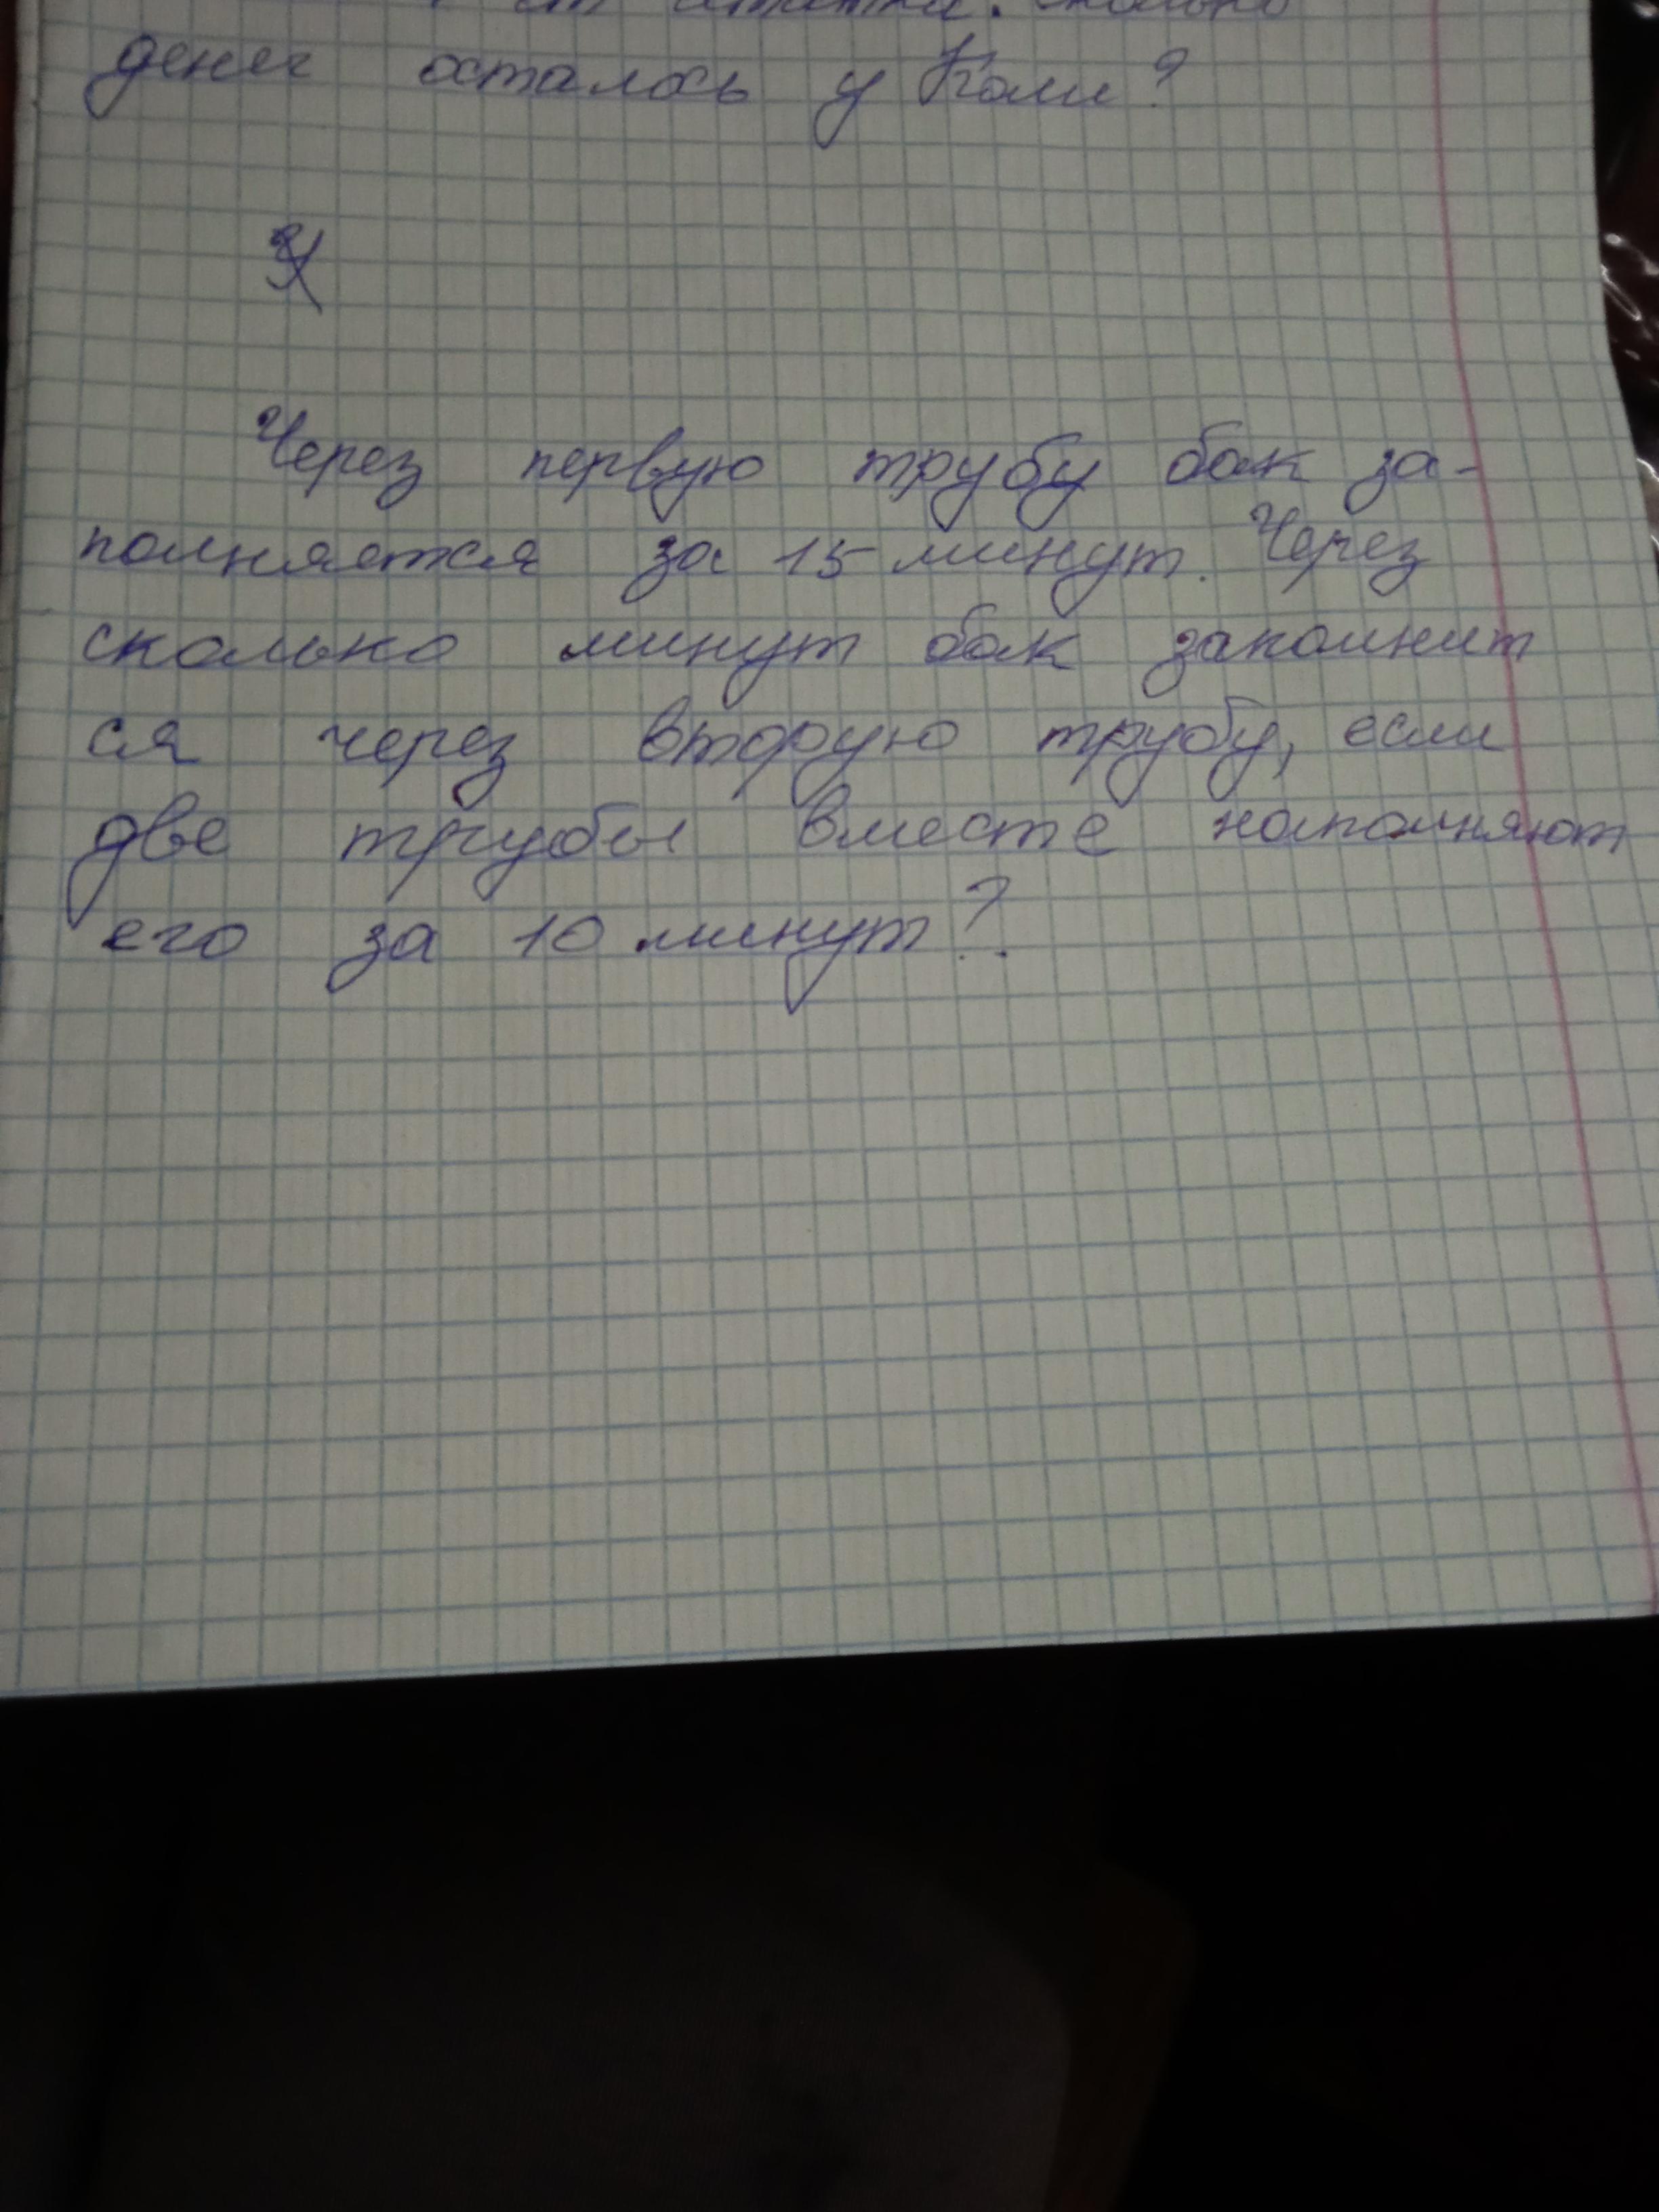 от остатка. Сколько
денег осталось у Коли?
Через первую трубу бак за-
полняется за 15 минут. Через
сколько минут бак заполнит
ся через вторую трубу, если
две трубы вместе наполняют
его за 10 минут?